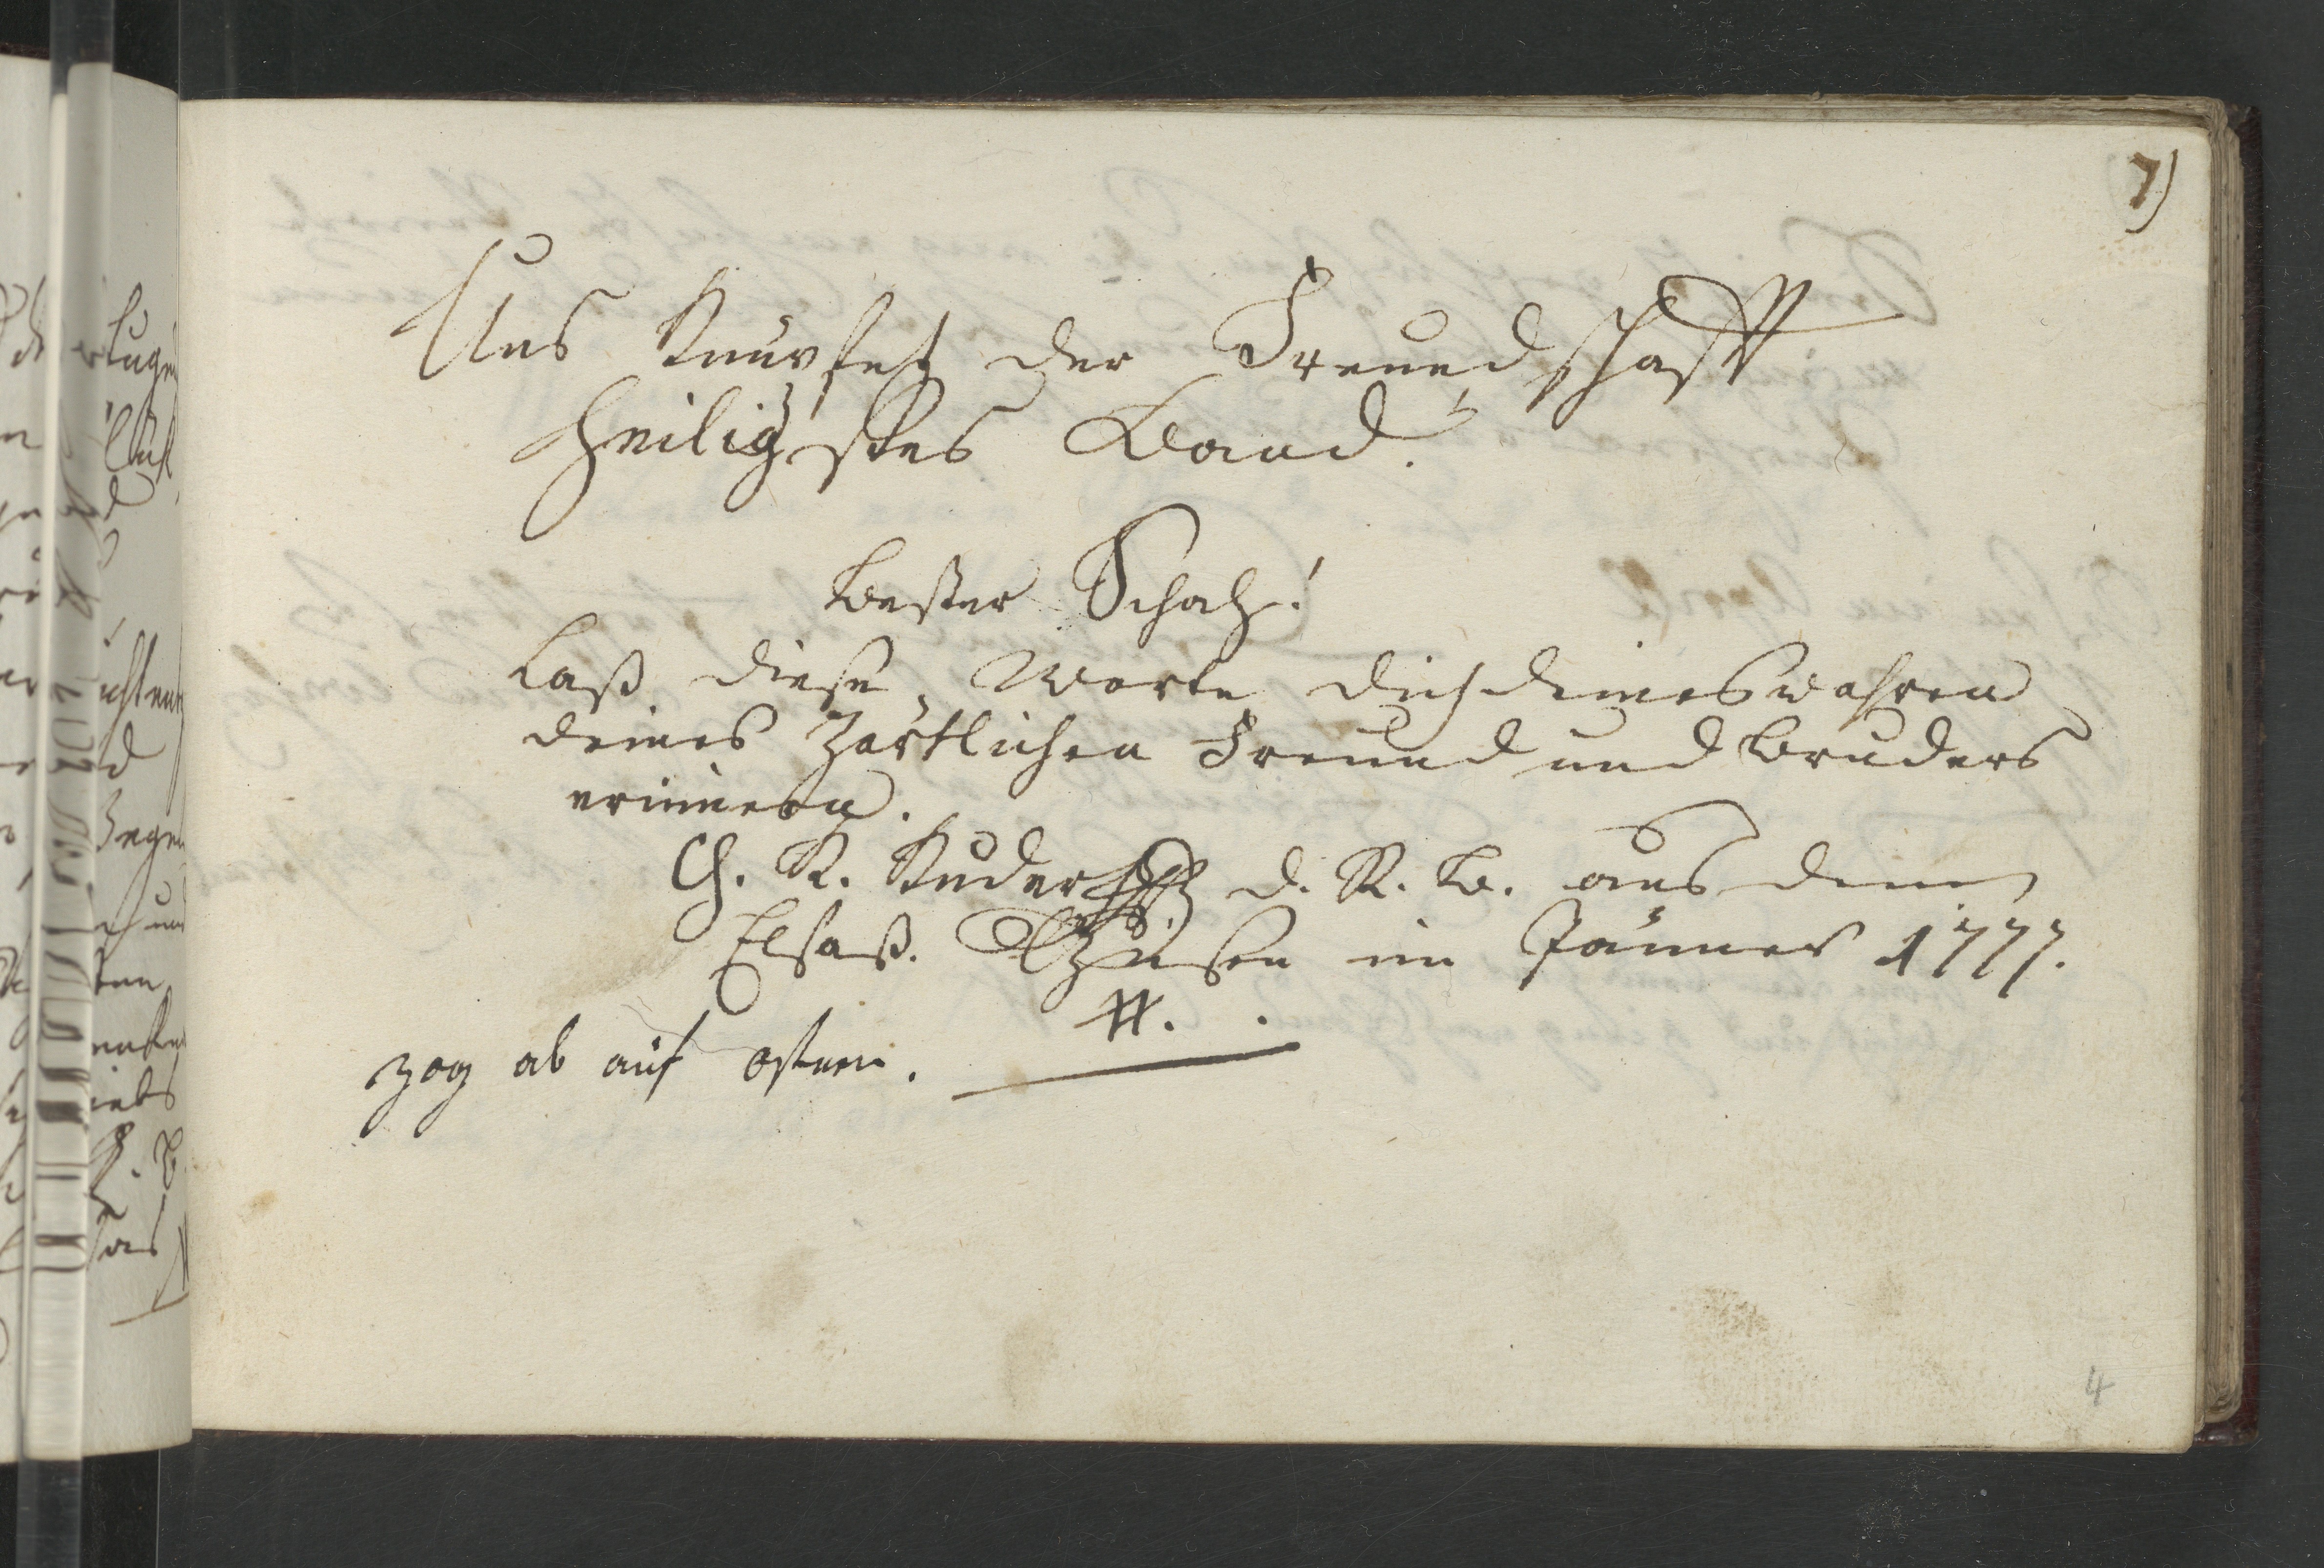 7)
Uns Knüpfet der Freundschafft
Heiligstes Band.
Bester Schaz!
Laß diese Worte dich deines wahren
deines Zärtlichen Freund und Bruders
erinnern.
C. K. d. R. B. aus dem
Elsaß. im Jänner 1777.
zog ab auf ostern.
4